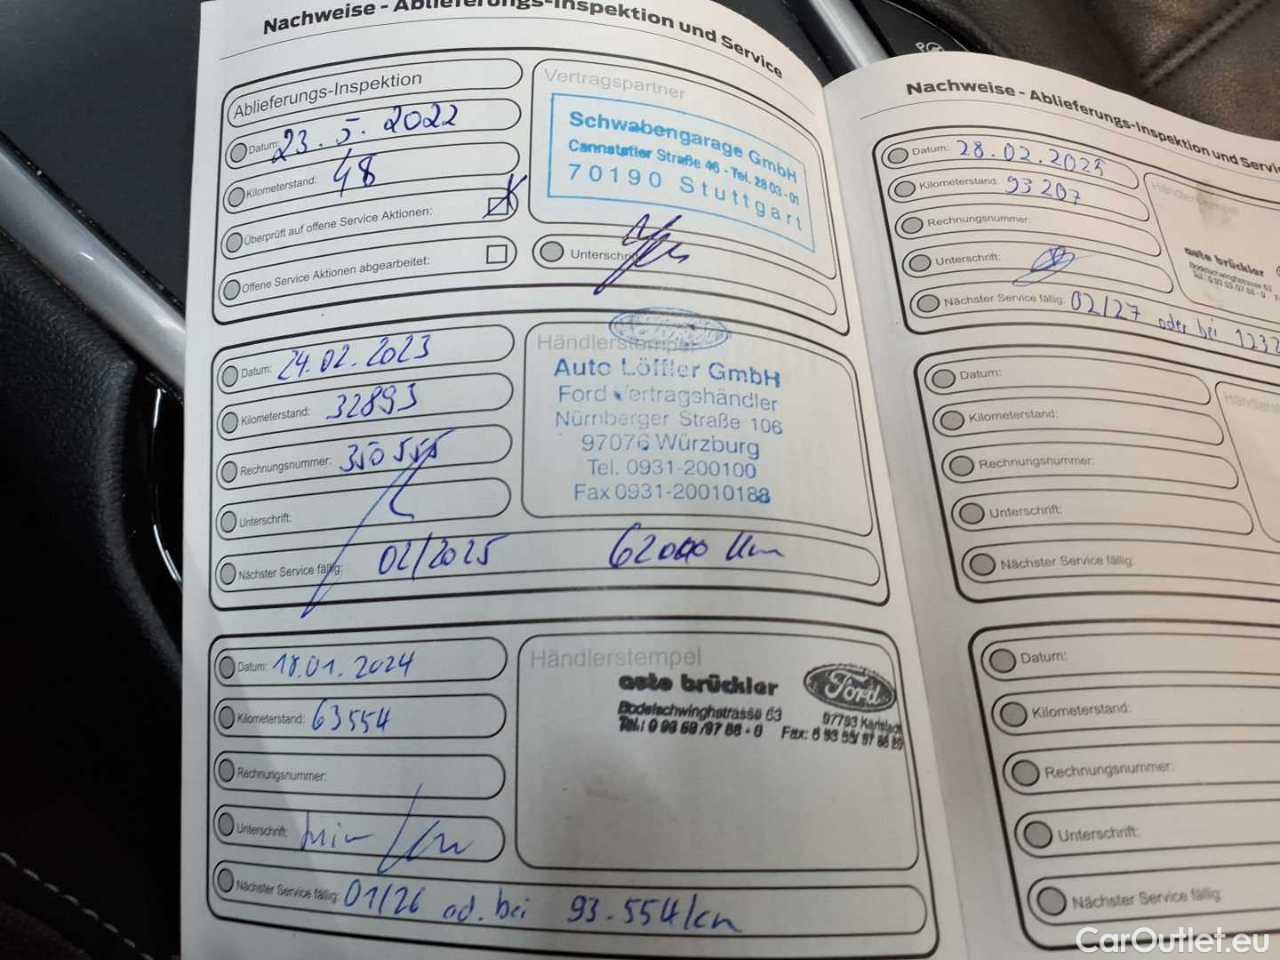 Nachweise - Ablieferungs-Inspektion und Service
Ablieferungs-Inspektion
Datum: 23.5.2022
Kilometerstand: 48
Überprüft auf offene Service Aktionen:
Offene Service Aktionen abgearbeitet:
Vertragspartner
Schwabengarage GmbH
Cannstatter Straße 46 - Tel. 28 03 - 01
70190 Stuttgart
Unterschrift
Datum: 24.02.2023
Kilometerstand: 32893
Rechnungsnummer: 350555
Unterschrift:
Nächster Service fällig: 02/2025 62000 km
Händlerstempel
Auto Löffler GmbH
Ford Vertragshändler
Nürnberger Straße 106
97076 Würzburg
Tel. 0931-200100
Fax 0931-20010188
Datum: 18.01.2024
Kilometerstand: 63554
Rechnungsnummer:
Unterschrift:
Nächster Service fällig: 01/26 od. bei 93.554 km
Händlerstempel
auto brückler
Ford
Bodelschwinghstrasse 63
97793 Karlstadt
Nachweise - Ablieferungs-Inspektion und Servi
Datum: 28.02.2025
Kilometerstand: 93207
Rechnungsnummer:
Unterschrift:
Nächster Service fällig: 02/27 oder bei 1232
auto brückler
Bodelschwinghstrasse 63
Datum:
Kilometerstand:
Rechnungsnummer:
Unterschrift:
Nächster Service fällig:
Datum:
Kilometerstand:
Rechnungsnummer:
Unterschrift:
Nächster Service fällig:
CarOutlet.eu